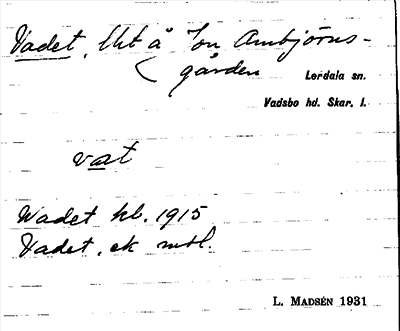 Vadet, Utt å Jon Ambjörns-
gården
Lerdala sn.
Vadsbo hd. Skar. l.
vat
Wadet kl. 1915
Vadet, ek mtl.
L. MADSÉN 1931